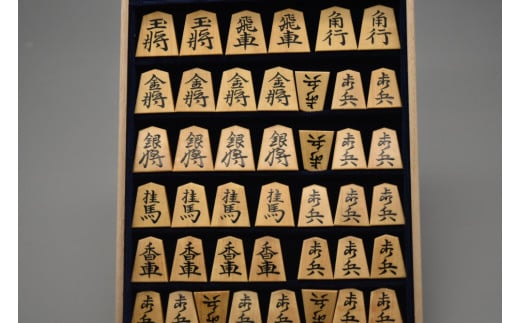 玉將 玉將 飛車 飛車 角行 角行
金將 金將 金將 金將 歩兵 歩兵 歩兵
銀將 銀將 銀將 銀將 歩兵 歩兵 歩兵
桂馬 桂馬 桂馬 桂馬 歩兵 歩兵 歩兵
香車 香車 香車 香車 歩兵 歩兵 歩兵
歩兵 歩兵 歩兵 歩兵 歩兵 歩兵 歩兵 歩兵